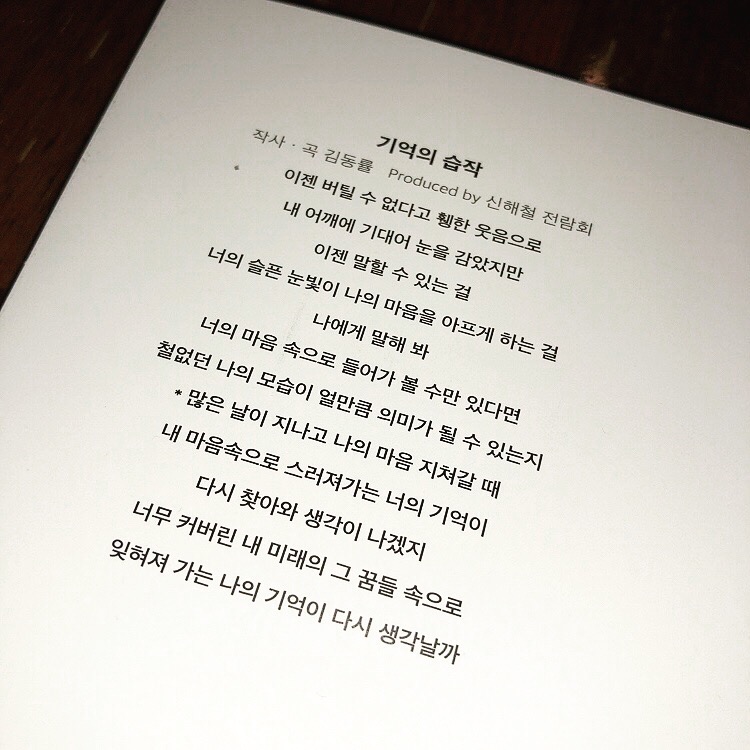 기억의 습작
작사 · 곡 김동률 Produced by 신해철 전람회
이젠 버틸 수 없다고 휑한 웃음으로
내 어깨에 기대어 눈을 감았지만
이젠 말할 수 있는 걸
너의 슬픈 눈빛이 나의 마음을 아프게 하는 걸
나에게 말해 봐
너의 마음 속으로 들어가 볼 수만 있다면
철없던 나의 모습이 얼만큼 의미가 될 수 있는지
* 많은 날이 지나고 나의 마음 지쳐갈 때
내 마음속으로 스러져가는 너의 기억이
다시 찾아와 생각이 나겠지
너무 커버린 내 미래의 그 꿈들 속으로
잊혀져 가는 나의 기억이 다시 생각날까